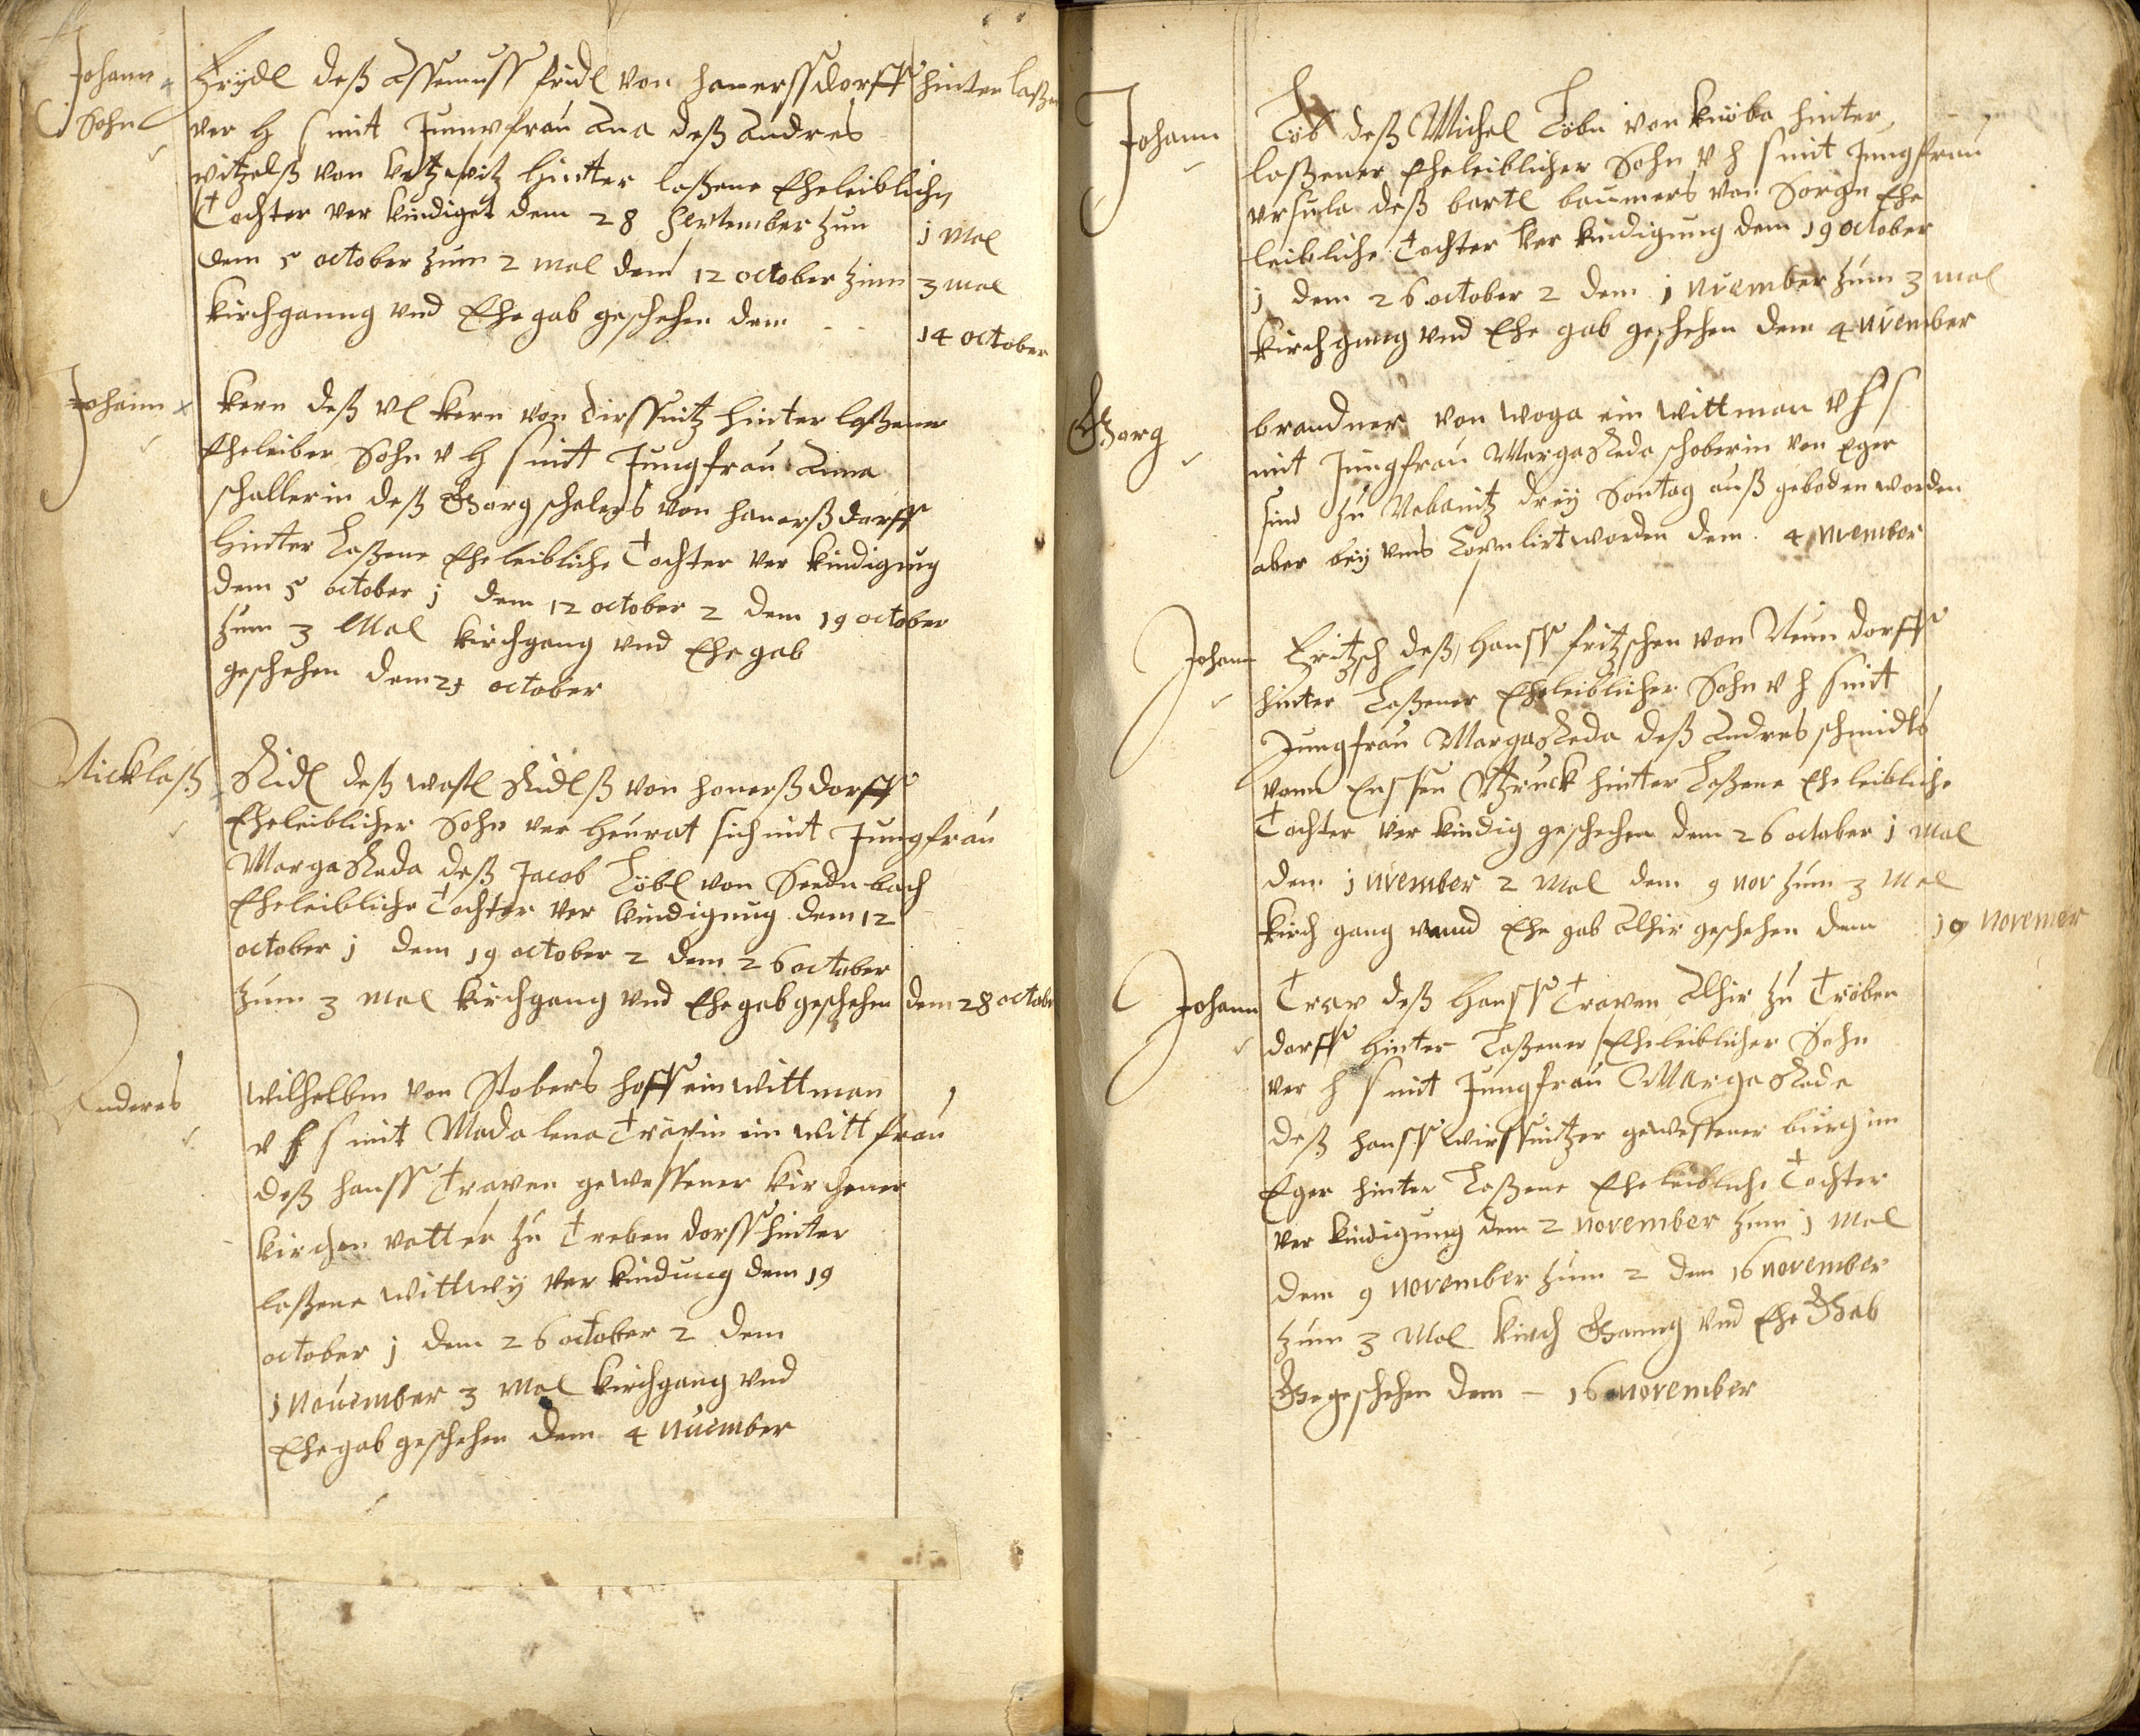 Johann Fridl deß Assemuss fridl von hanerssdorff hinter laßen
Sohn ver H s mit Junpfrau Ana deß Andres
witzelß von ketzwitz hintter laßene Eheleibliche
Tochter ver kindiget dem 28 September zum 1 Mal
dem 5 october zum 2 mal dem 12 october zum 3 mal
kirchganng vnd Ehegab geschehen dem 14 october
Johann kern deß Vl kern von Dirschnitz hinter laßener
Eheleiber Sohn v H s mit Jungfrau Anna
schallerin deß Georg schalers von hanerßdorff
hinter laßene Eheleibliche Tochter ver kindigung
dem 5 october j dem 12 october 2 dem 19 october
zum 3 Mal kirchgang vnd Ehe gab
geschehen dem 21 october
Nicklaß Ridl deß wastl Ridlß von honerßdorff
Eheleiblicher Sohn ver heurat sich mit Jungfrau
Margareda deß Jacob Löbl von Seednbach
Eheleibliche Tochter ver kindigung dem 12
october j dem 19 october 2 dem 26 october
zum 3 mal kirchgang vnd Ehegab geschehen dem 28 october
Anderes wilhelbm von Stobers hoff ein wittman
v h s mit Madalena Travin ein witt frau
deß hanss Traven gewessener kirchener
kirchen vatter zu Treben dorff hinter
laßene wittwy ver kindung dem 19
october j dem 26 october 2 dem
1 November 3 mal kirchgang vnd
Ehegab geschehen dem 4 Nuember
Johann Löb deß Michel Löbn von knöba hinter
laßener Eheleiblicher Sohn v h s mit Jungfrau
vrsula deß bartl baumers von Sorgn Ehe
leibliche Tochter ver kindigung dem 19 october
j dem 26 october 2 dem 1 nvember zum 3 mal
kirchgang vnd Ehe gab geschehen dem 4 nvember
Georg brandner von woga ein wittman v h s
mit Jungfrau Margareda schoberin von Eger
sind zu Nebanitz dreÿ Sontag auß geboden worden
aber beÿ vns worden dem 4 nvember
Johann Fritzsch deß hanss fritzschen von Neun dorff
hinter laßener Eheleiblicher Sohn v h s mit
Jungfrau Margareda deß Andres schmidts
vonn hinter laßene Eheleibliche
Tochter ver kindig geschechen dem 26 october 1 mal
dem 1 nvember 2 Mal dem 9 nov zum 3 Mal
kirch gang vnnd Ehe gab Alhir geschehen dem 10 novemer
Johann Trav deß Hanss Traven Alhir zu Tröben
dorff hinter laßener Eheleiblicher Sohn
ver h s mit Jungfrau Margareda
deß hanss wirssnitzer gewessener burg in
Eger hinter laßene Eheleibliche Tochter
ver kindigung dem 2 november zum 1 Mal
dem 9 november zum 2 dem 16 november
zum 3 Mal kirch Ganng vnd Ehe Gab
Gegeschehen dem – 16 november